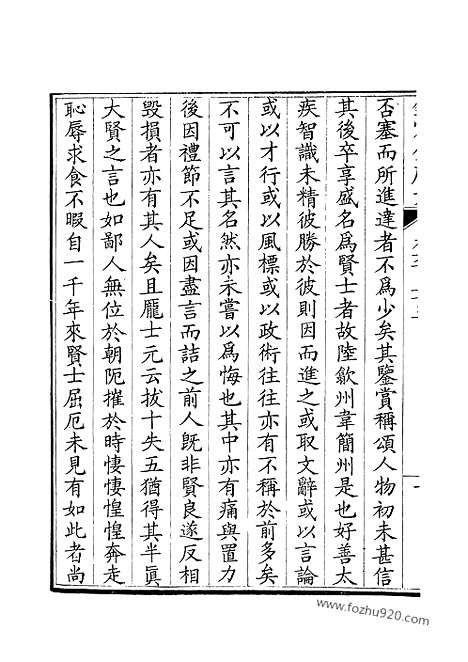 否塞而所進達者不爲少矣其鑒賞稱頌人物初未甚信
其後卒享盛名爲賢士者故陸歙州韋簡州是也好善太
疾智識未精彼勝於彼則因而進之或取文辭或以言論
或以才行或以風標或以政術往往亦有不稱於前多矣
不可以言其名然亦未嘗以爲悔也其中亦有痛與置力
後因禮節不足或因盡言而詰之前人旣非賢良遂反相
毀損者亦有其人矣且龐士元云拔十失五猶得其半眞
大賢之言也如鄙人無位於朝阨摧於時悽悽惶惶奔走
恥辱求食不暇自一千年來賢士屈厄未見有如此者尚
www.fozhu920.com